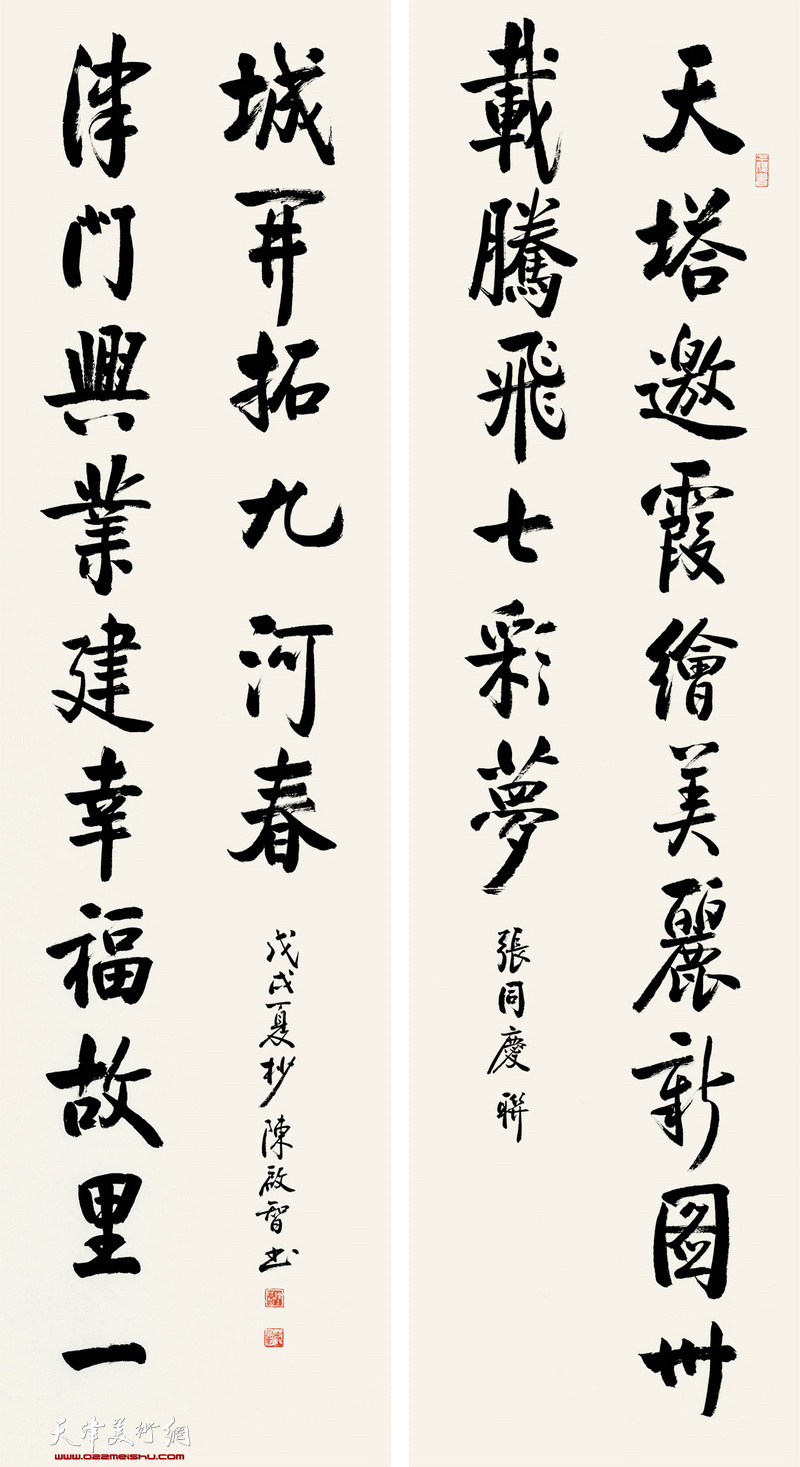 天塔邀霞繪美麗新圖卅
載騰飛七彩夢
張同慶聯
津門興業建幸福故里一
城開拓九河春
戊戌夏杪陳啟智书
天津美術網
www.022meishu.com